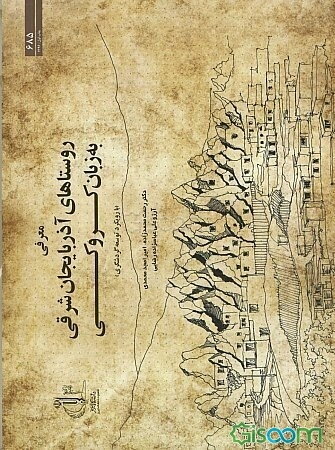 ۶۸۵
معرفی
روستاهای آذربایجان شرقی
به زبان کروکی
(با رویکرد توسعه گردشگری)
دکتر رحمت محمدزاده، امیر امجد محمدی
آرزو
Gisoom